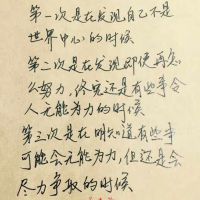 第一次是在发现自己不是
世界中心的时候
第二次是在发现即使再怎
么努力，终究还是有些事令
人无能为力的时候
第三次是在明知道有些事
可能会无能为力，但还是会
尽力争取的时候